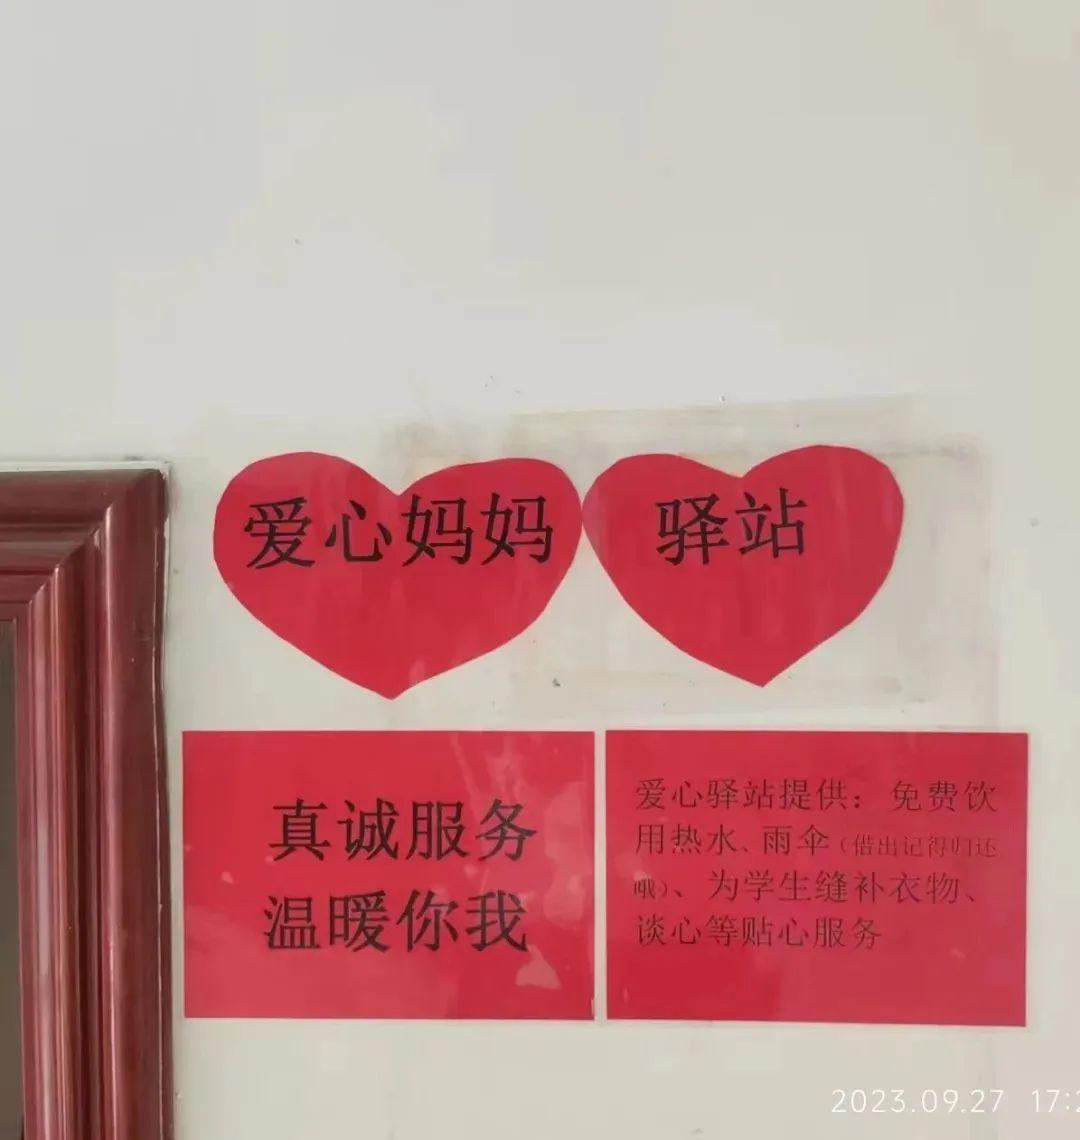 爱心妈妈
驿站
真诚服务
温暖你我
爱心驿站提供：免费饮
用热水、雨伞（借出记得归还
哦）、为学生缝补衣物、
谈心等贴心服务
2023.09.27 17:2